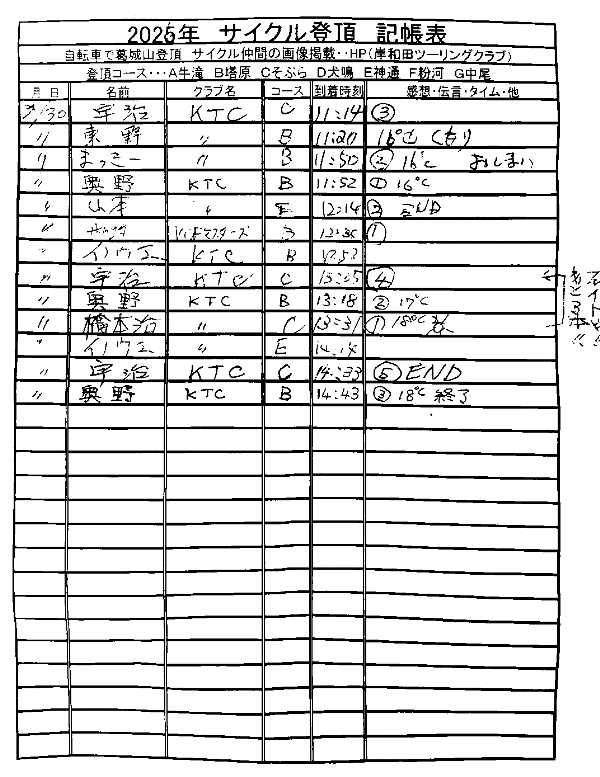 2025年 サイクル登頂 記帳表
自転車で葛城山登頂 サイクル仲間の画像掲載・・HP(岸和田ツーリングクラブ)
登頂コース・・・A牛滝 B塔原 Cそぶら D犬鳴 E神通 F粉河 G中尾
月 日 名前 クラブ名 コース 到着時刻 感想・伝言・タイム・他
/30 宇治 KTC C 11:14 ③
〃 東野 〃 B 11:20 16℃ くもり
〃 まっきー 〃 B 11:50 ② 16℃ おしまい
〃 奥野 KTC B 11:52 ① 16℃
〃 山本 〃 E 12:14 ② END
〃 B 12:35 ①
〃 イノウエ KTC B
〃 宇治 KTC C ④
〃 奥野 KTC B 13:18 ② 17℃
〃 橋本治 〃 C 13:31 ① 18℃
〃 イノウエ 〃 E 14:14
〃 宇治 KTC C 14:33 ⑤ END
〃 奥野 KTC B 14:43 ③ 18℃ 終了